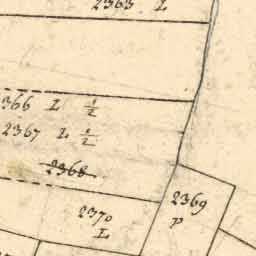 2363 L
2366 L 1/2
2367 L 1/2
2368
2369
P
2370
L